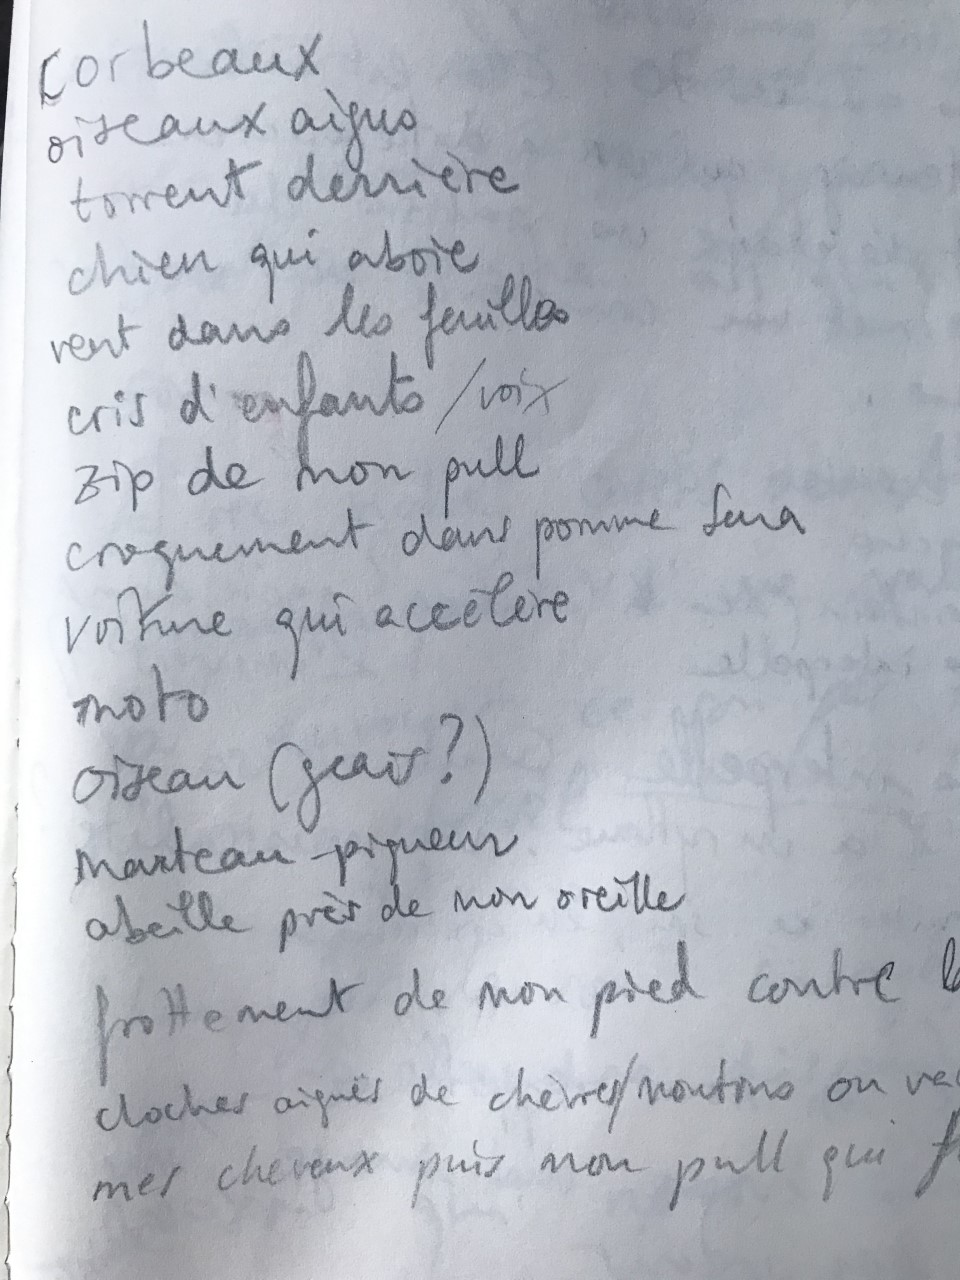 corbeaux
oiseaux aigus
torrent derrière
chien qui aboie
vent dans les feuilles
cris d'enfants / voix
zip de mon pull
croquement dans pomme
voiture qui accélère
moto
oiseau (geais?)
marteau-piqueur
abeille près de mon oreille
frottement de mon pied contre
cloches aiguës de chèvres/moutons ou
mes cheveux puis mon pull qui